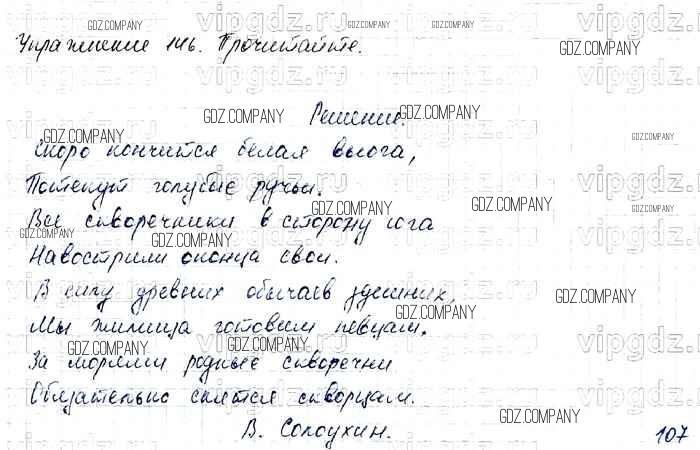 Упражнение 146. Прочитайте.
Решение.
Скоро кончится белая вьюга,
Потекут голубые ручьи.
Все скворечники в сторону юга
Навострили оконца свои.
В силу древних обычаев здешних,
Мы жилища готовим певцам.
За морями родные скворечни
Обязательно снятся скворцам.
В. Солоухин.
107